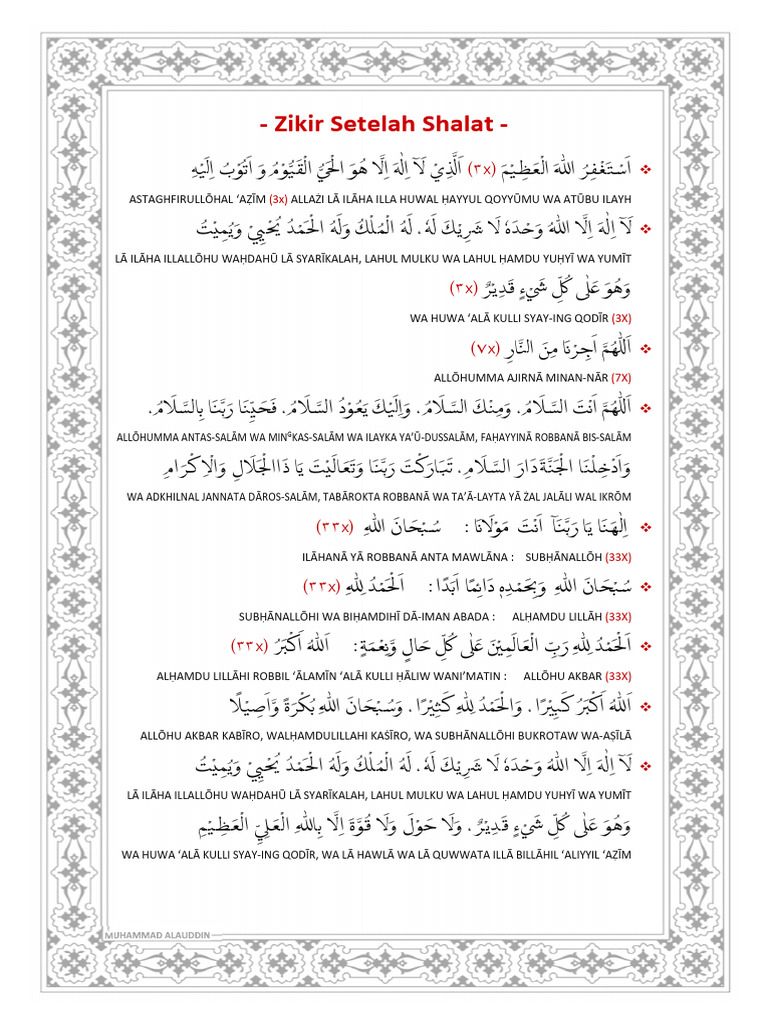 - Zikir Setelah Shalat -
❖ اَسْتَغْفِرُ اللهَ الْعَظِيْمَ (٣x) اَلَّذِيْ لَآ اِلٰهَ اِلَّا هُوَ الْحَيُّ الْقَيُّوْمُ وَ اَتُوْبُ اِلَيْهِ
ASTAGHFIRULLŌHAL ‘AẒĪM (3x) ALLAŻI LĀ ILĀHA ILLA HUWAL ḤAYYUL QOYYŪMU WA ATŪBU ILAYH
❖ لَآ اِلٰهَ اِلَّا اللهُ وَحْدَهٗ لَا شَرِيْكَ لَهٗ. لَهُ الْمُلْكُ وَلَهُ الْحَمْدُ يُحْيِيْ وَيُمِيْتُ
LĀ ILĀHA ILLALLŌHU WAḤDAHŪ LĀ SYARĪKALAH, LAHUL MULKU WA LAHUL ḤAMDU YUḤYĪ WA YUMĪT
وَهُوَ عَلٰى كُلِّ شَيْءٍ قَدِيْرٌ (٣x)
WA HUWA ‘ALĀ KULLI SYAY-ING QODĪR (3X)
❖ اَللّٰهُمَّ اَجِرْنَا مِنَ النَّارِ (٧x)
ALLŌHUMMA AJIRNĀ MINAN-NĀR (7X)
❖ اَللّٰهُمَّ اَنْتَ السَّلَامُ. وَمِنْكَ السَّلَامُ. وَاِلَيْكَ يَعُوْدُ السَّلَامُ. فَحَيِّنَا رَبَّنَا بِالسَّلَامُ.
ALLŌHUMMA ANTAS-SALĀM WA MINᴳKAS-SALAM WA ILAYKA YA’Ū-DUSSALĀM, FAḤAYYINĀ ROBBANĀ BIS-SALĀM
وَاَدْخِلْنَا الْجَنَّةَ دَارَ السَّلَامِ. تَبَارَكْتَ رَبَّنَا وَتَعَالَيْتَ يَا ذَاالْجَلَالِ وَالْاِكْرَامِ
WA ADKHILNAL JANNATA DĀROS-SALĀM, TABĀROKTA ROBBANĀ WA TA’Ā-LAYTA YĀ ŻAL JALĀLI WAL IKRŌM
❖ اِلٰهَنَا يَا رَبَّنَآ اَنْتَ مَوْلَانَا : سُبْحَانَ اللهِ (٣٣x)
ILĀHANĀ YĀ ROBBANĀ ANTA MAWLĀNA : SUBḤĀNALLŌH (33X)
❖ سُبْحَانَ اللهِ وَبِحَمْدِهٖ دَائِمًا اَبَدًا: اَلْحَمْدُ لِلهِ (٣٣x)
SUBḤĀNALLŌHI WA BIḤAMDIHĪ DĀ-IMAN ABADA : ALḤAMDU LILLĀH (33X)
❖ اَلْحَمْدُ لِلهِ رَبِّ الْعَالَمِيْنَ عَلٰى كُلِّ حَالٍ وَّنِعْمَةٍ: اَللهُ اَكْبَرُ (٣٣x)
ALḤAMDU LILLĀHI ROBBIL ‘ĀLAMĪN ‘ALĀ KULLI ḤĀLIW WANI’MATIN : ALLŌHU AKBAR (33X)
❖ اَللهُ اَكْبَرُ كَبِيْرًا . وَالْحَمْدُ لِلهِ كَثِيْرًا . وَسُبْحَانَ اللهِ بُكْرَةً وَّاَصِيْلًا
ALLŌHU AKBAR KABĪRO, WALḤAMDULILLAHI KAŚĪRO, WA SUBHĀNALLŌHI BUKROTAW WA-AṢĪLĀ
❖ لَآ اِلٰهَ اِلَّا اللهُ وَحْدَهٗ لَا شَرِيْكَ لَهٗ. لَهُ الْمُلْكُ وَلَهُ الْحَمْدُ يُحْيِيْ وَيُمِيْتُ
LĀ ILĀHA ILLALLŌHU WAḤDAHŪ LĀ SYARĪKALAH, LAHUL MULKU WA LAHUL ḤAMDU YUHYĪ WA YUMĪT
وَهُوَ عَلٰى كُلِّ شَيْءٍ قَدِيْرٌ. وَلَا حَوْلَ وَلَا قُوَّةَ اِلَّا بِاللهِ الْعَلِيِّ الْعَظِيْمِ
WA HUWA ‘ALĀ KULLI SYAY-ING QODĪR, WA LĀ HAWLĀ WA LĀ QUWWATA ILLĀ BILLĀHIL ‘ALIYYIL ‘AẒĪM
MUHAMMAD ALAUDDIN